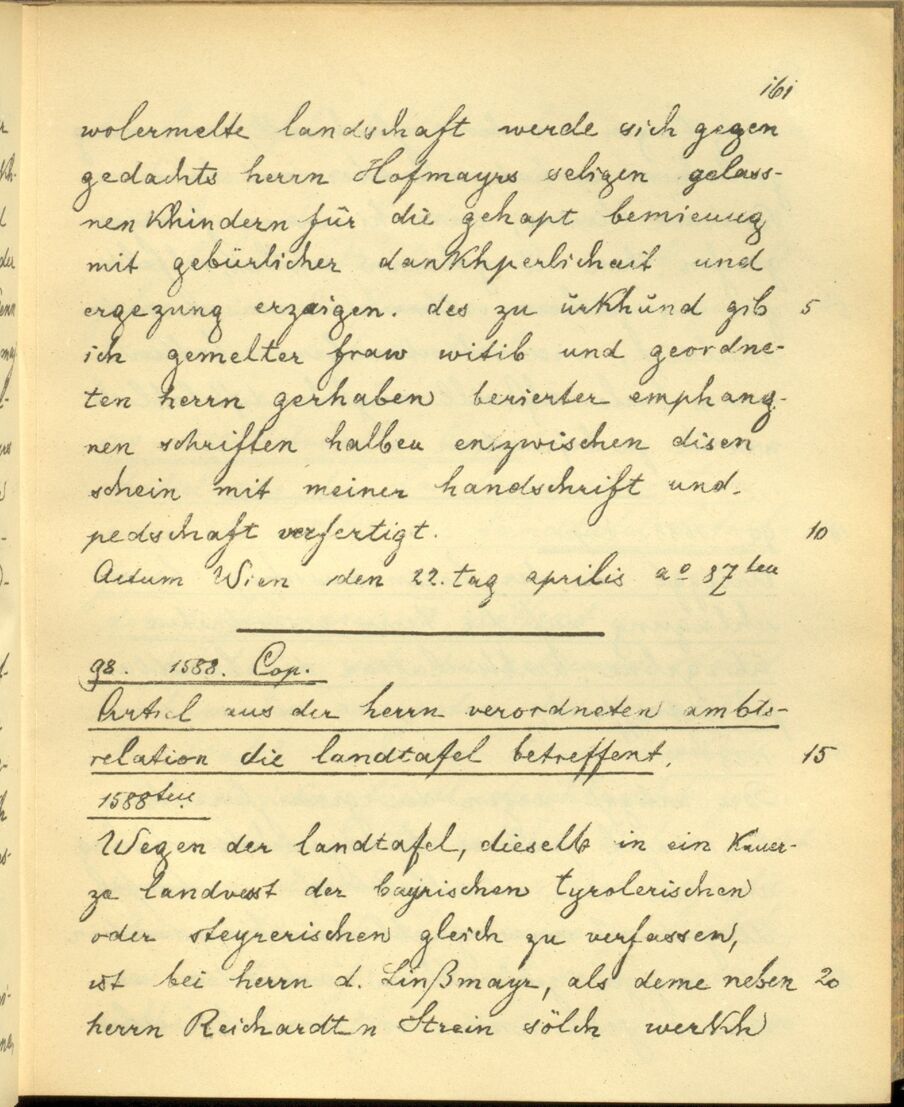 161
wolermelte landschaft werde sich gegen
gedachts herrn Hofmayrs seligen gelass-
nen Khindern für die gehapt bemieuug
mit gebürlicher dankhperlichait und
ergezung erzaigen. des zu ŭrkhŭnd gib 5
ich gemelter fraw witib und geordne-
ten herrn gerhaben berierter emphang-
nen schriften halben enzwischen disen
schein mit meiner handschrift und
pedschaft verfertigt. 10
Actum Wien den 22. tag aprilis aº 87ten
98. 1588. Cop.
Articl aus der herrn verordneten ambts-
relation die landtafel betreffent, 15
1588ten
Wegen der landtafel, dieselb in ein kuer-
ze landvest der bayrischen tyrolerischen
oder steyrerischen gleich zu verfassen,
ist bei herrn d. Linßmayr, als deme neben 20
herrn Reichardtn Strein sölch werkh